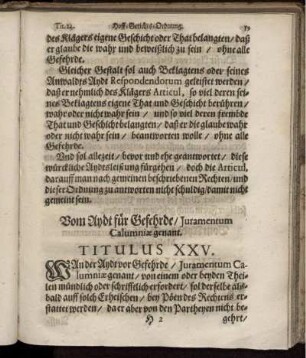 Tit. 24. Hoff-Gerichts-Ordnung. 59
des Klägers eigene Geschicht oder That belangten / daß
er glaube die wahr und beweißlich zu sein / ohne alle
Gefehrde.
Gleicher Gestalt sol auch Beklagtens oder seines
Anwaldes Aydt Respondendorum geleistet werden /
daß er nehmlich des Klägers Articul, so viel deren sei-
nes Beklagtens eigene That und Geschicht berühren /
wahr oder nicht wahr sein / und so viel deren frembde
That und Geschicht belangten / daß er die glaube wahr
oder nicht wahr sein / beantworten wolle / ohne alle
Gefehrde.
Und sol allezeit / bevor und ehe geantwortet / diese
würckliche Aydesleistung fürgehen / doch die Articul,
darauff man nach gemeinen beschriebenen Rechten / und
dieser Ordnung zu antworten nicht schuldig / damit nicht
gemeint sein.
Vom Aydt für Gefehrde / Juramentum
Calumniæ genant.
TITULUS XXV.
WAn der Aydt vor Gefehrde / Juramentum Ca-
lumniæ genant / von einem oder beyden Thei-
len mündlich oder schrifftlich erfordert / sol derselbe als-
bald auff solch Erheischen / bey Pöen des Rechtens er-
stattet werden / da er aber von den Partheyen nicht be-
H 2 gehrt /